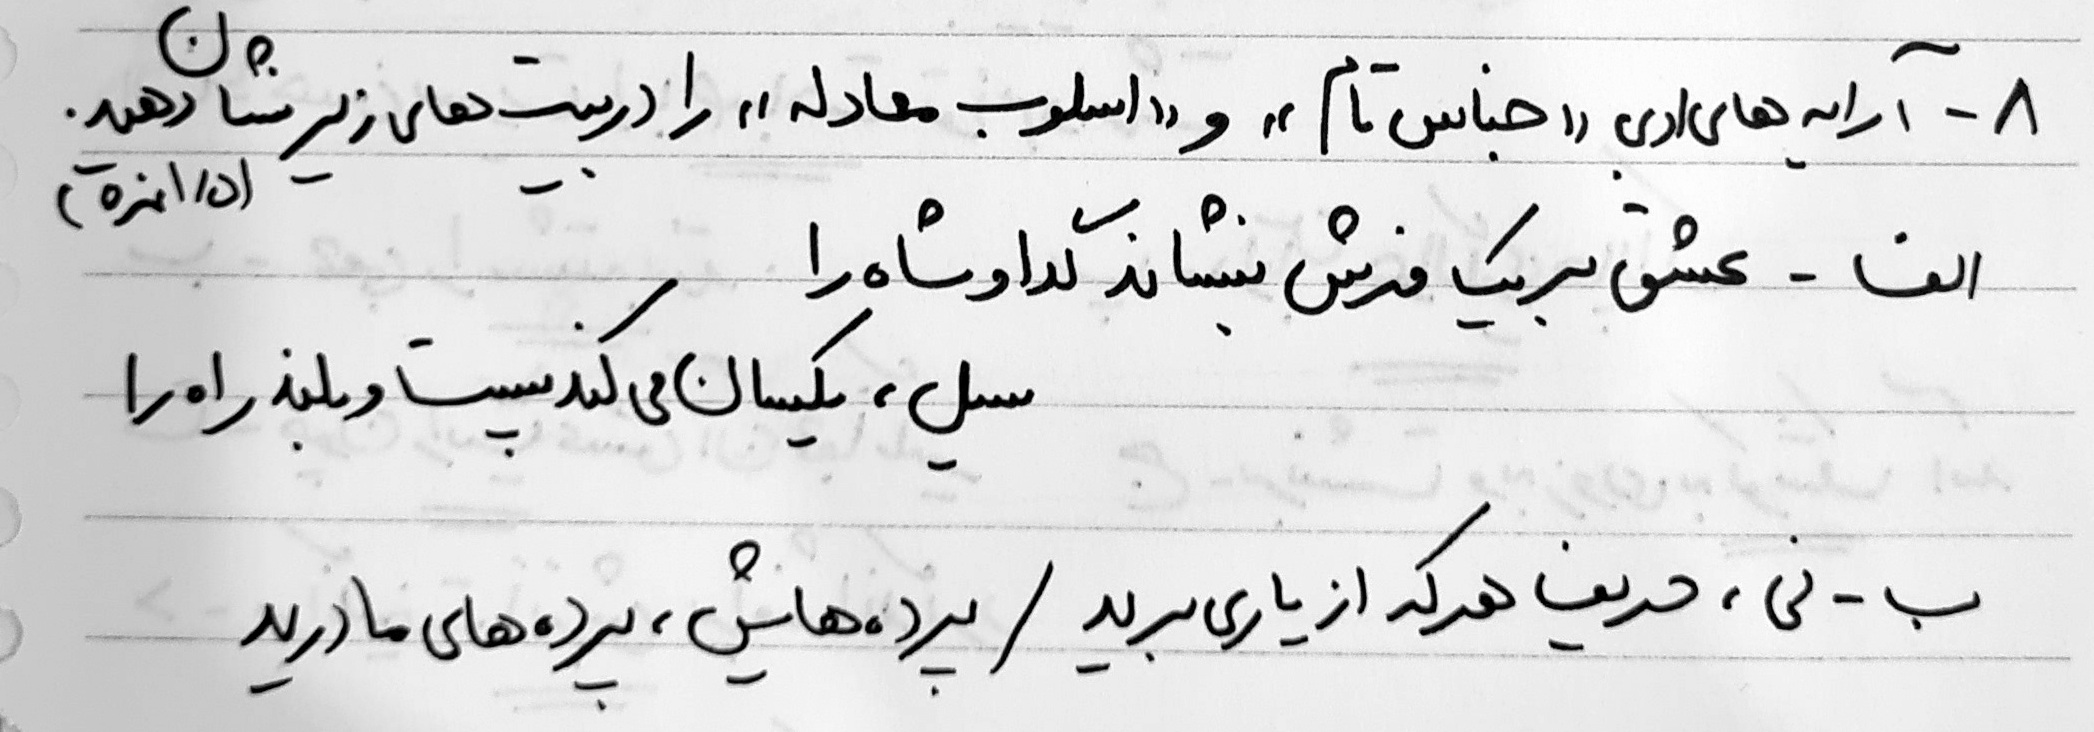 ۸- آرایه های ادبی «جناس تام» و «اسلوب معادله» را در بیت های زیر نشان دهید.
(۱/۵ نمره)
الف - عشق بر یک فرش بنشاند گدا و شاه را
سیل، یکسان می کند پست و بلند راه را
ب - نی، حریف هر که از یاری برید / پرده هایش، پرده های ما درید